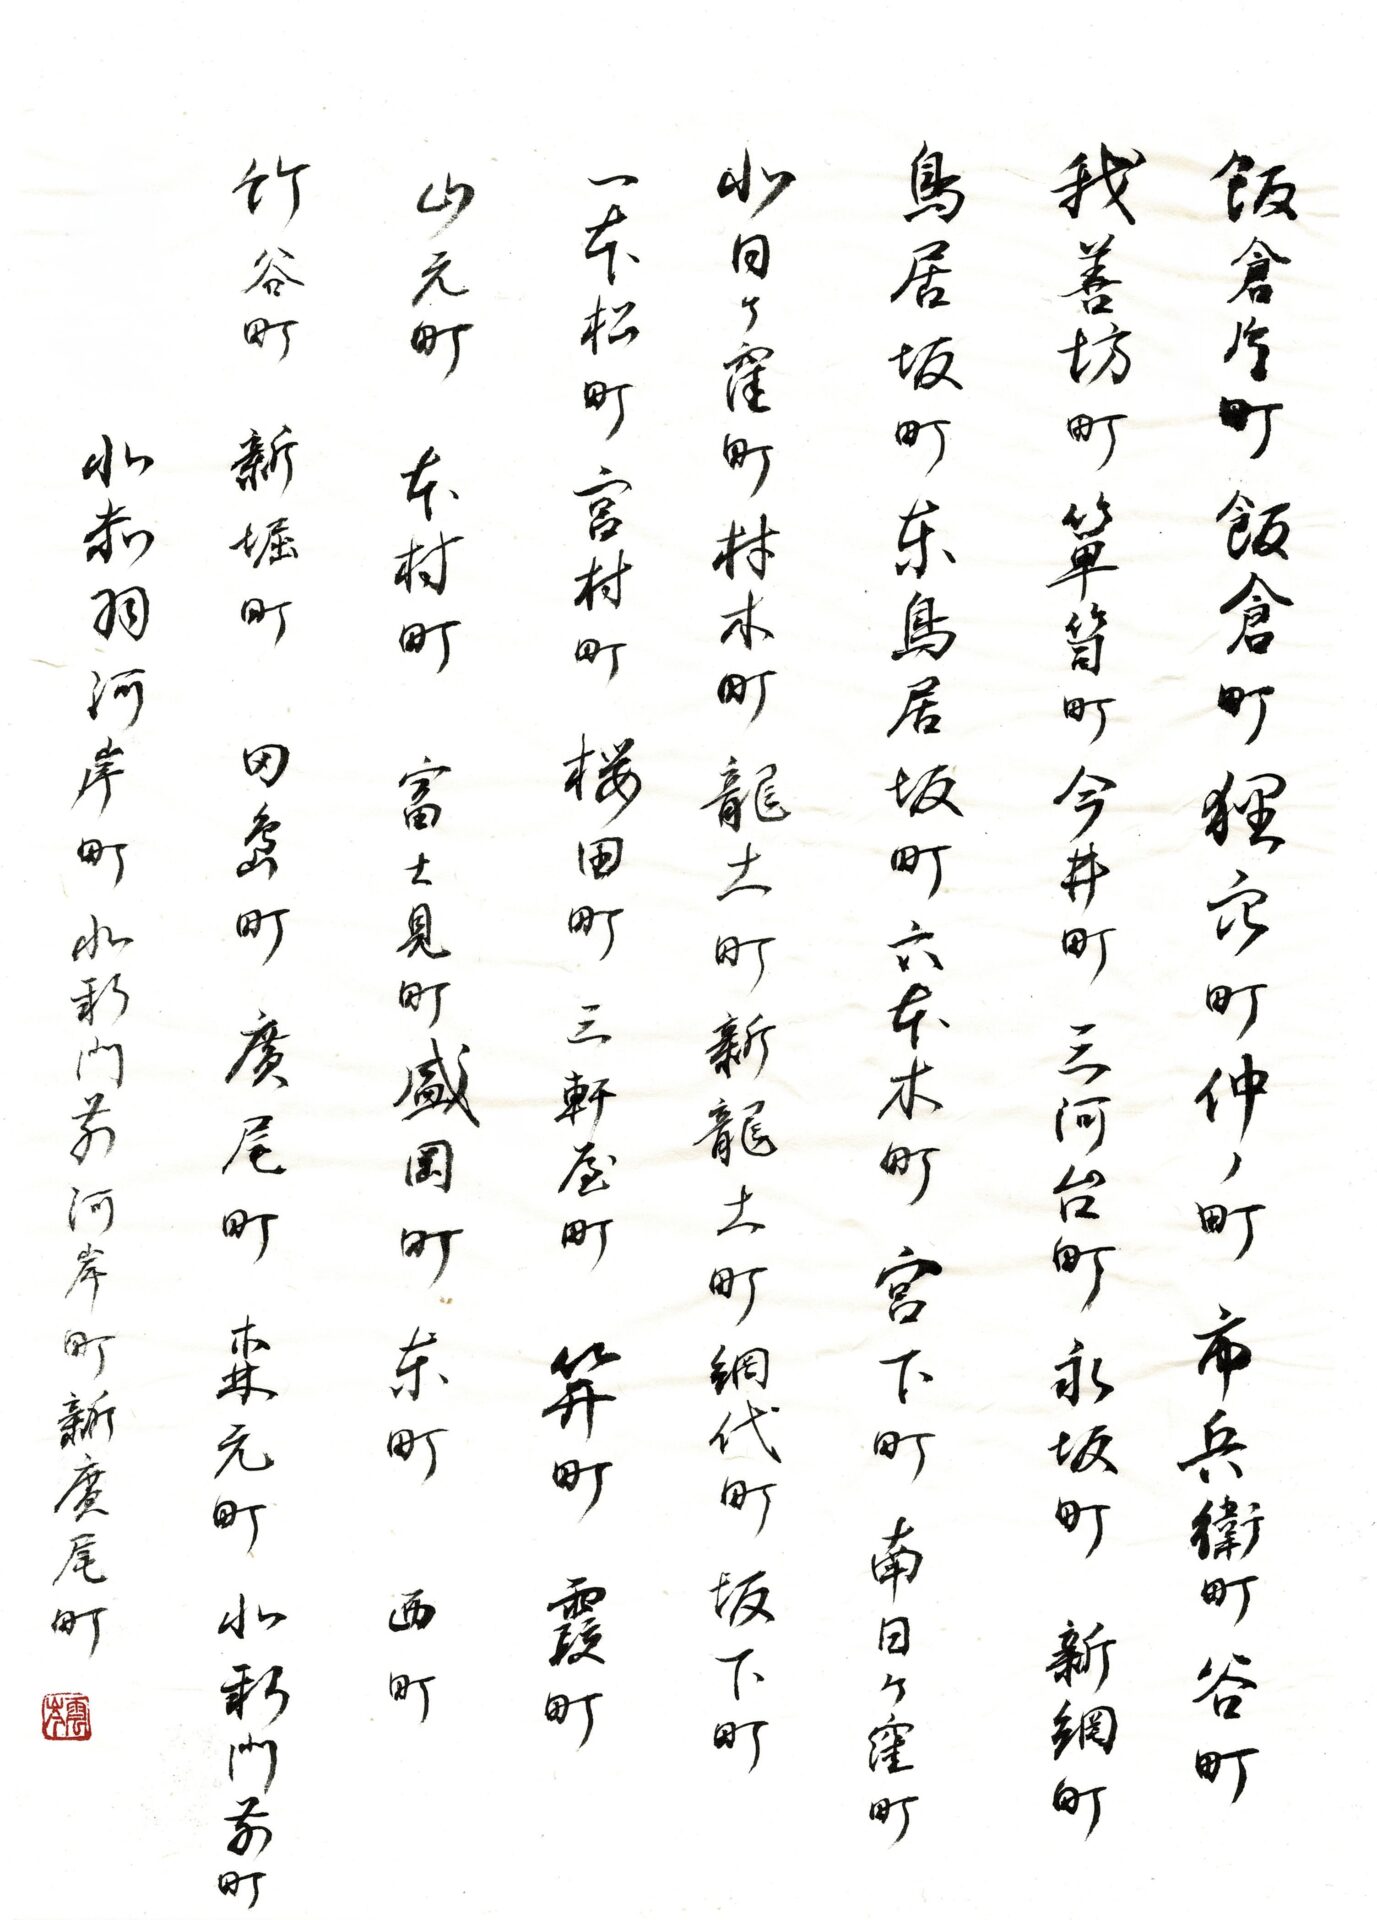 飯倉片町 飯倉町 狸穴町 仲ノ町 市兵衛町 谷町
我善坊町 箪笥町 今井町 三河台町 永坂町 新網町
鳥居坂町 东鳥居坂町 六本木町 宮下町 南日ヶ窪町
北日ヶ窪町 材木町 龍土町 新龍土町 網代町 坂下町
一本松町 宮村町 桜田町 三軒屋町 笄町 霞町
山元町 本村町 富士見町 盛岡町 东町 西町
竹谷町 新堀町 田島町 廣尾町 森元町 北新門前町
北赤羽河岸町 北新門前河岸町 新廣尾町